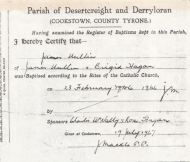 Parish of Desertcreight and Derryloran
(COOKSTOWN, COUNTY TYRONE.)
Having examined the Register of Baptisms kept in this Parish,
I hereby Certify that
James Mullin
of James Mullin & Hagan
was Baptised according to the Rites of the Catholic Church,
on 23 February
Sponsors Charles McNally & Rose Hagan
Given at Cookstown, 19 July 1967